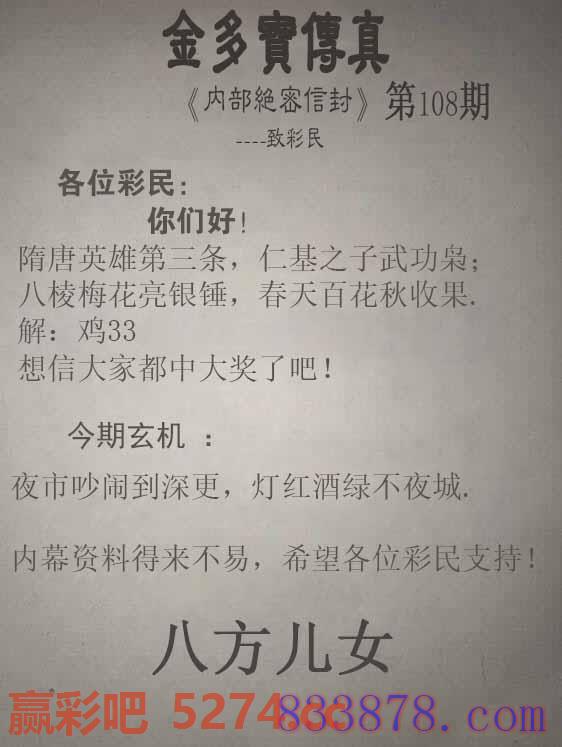 金多寶傳真
《内部絕密信封》第108期
----致彩民
各位彩民:
你们好!
隋唐英雄第三条，仁基之子武功枭;
八棱梅花亮银锤，春天百花秋收果.
解：鸡33
想信大家都中大奖了吧!
今期玄机 ：
夜市吵闹到深更，灯红酒绿不夜城.
内幕资料得来不易，希望各位彩民支持!
八方儿女
赢彩吧 5274.cc
833878.com